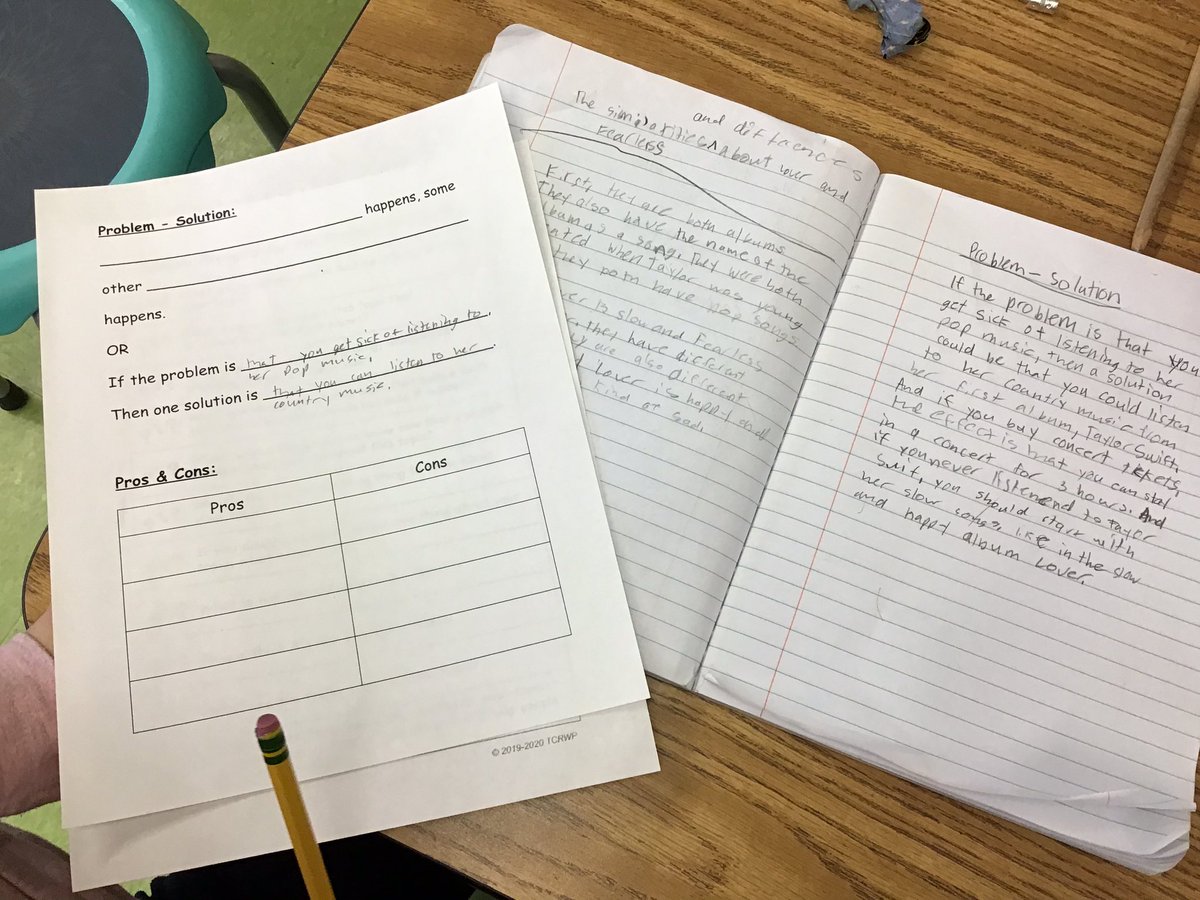 Problem - Solution:
happens, some
other
happens.
OR
If the problem is that you get sick of listening to
her pop music.
Then one solution is that you can listen to her
country music.
Pros & Cons:
Pros Cons
© 2019-2020 TCRWP
and differences
The similarities ^ About lover and
Fearless
First, they are both albums
They also have the name of the
as a song. They were both
when Taylor was young
they both have pop songs.
is slow and Fearless
they have different
are also different
Lover is happy and
kind of sad.
Problem - Solution
If the problem is that you
get sick of listening to her
pop music, then a solution
could be that you could listen
to her country music from
her first album, Taylor Swift.
And if you buy concert tickets,
the effect is that you can stay
in a concert for 3 hours. And
if you never listenend to taylor
Swift, you should start with
her slow songs, like in the slow
and happy album Lover.